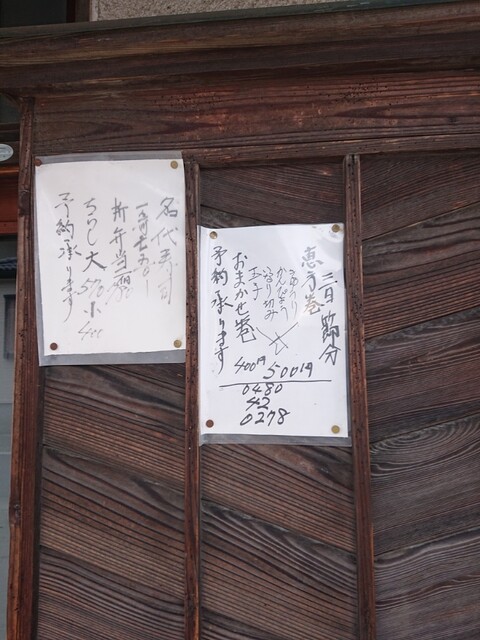 三日 節分
恵方巻
きゅうり
かんぴょう
玉子
おまかせ巻
予約承ります
400円 500円
0480
42
0278
名代寿司
折弁当
ちらし 大 500 小 400
予約承ります